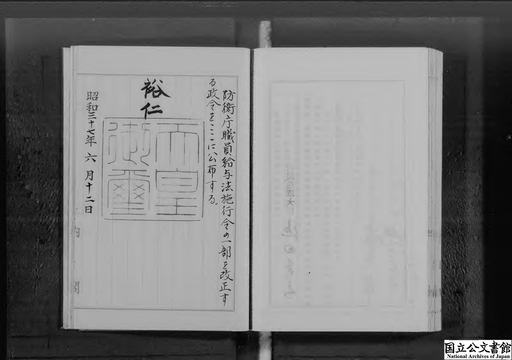 防衛庁職員給与法施行令の一部を改正す
る政令をここに公布する。
裕仁
天皇御璽
昭和三十七年六月十二日
内閣
国立公文書館
National Archives of Japan